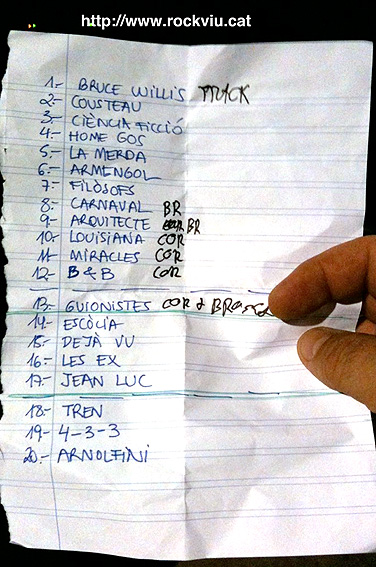 http://www.rockviu.cat
1.- BRUCE WILLIS TRACK
2.- COUSTEAU
3.- CIÈNCIA FICCIÓ
4.- HOME GOS
5.- LA MERDA
6.- ARMENGOL
7.- FILÒSOFS
8.- CARNAVAL BR
9.- ARQUITECTE BR
10.- LOUISIANA COR
11.- MIRACLES COR
12.- B & B COR
13.- GUIONISTES COR &
14.- ESCÒLIA
15.- DEJÀ VU
16.- LES EX
17.- JEAN LUC
18.- TREN
19.- 4-3-3
20.- ARNOLFINI